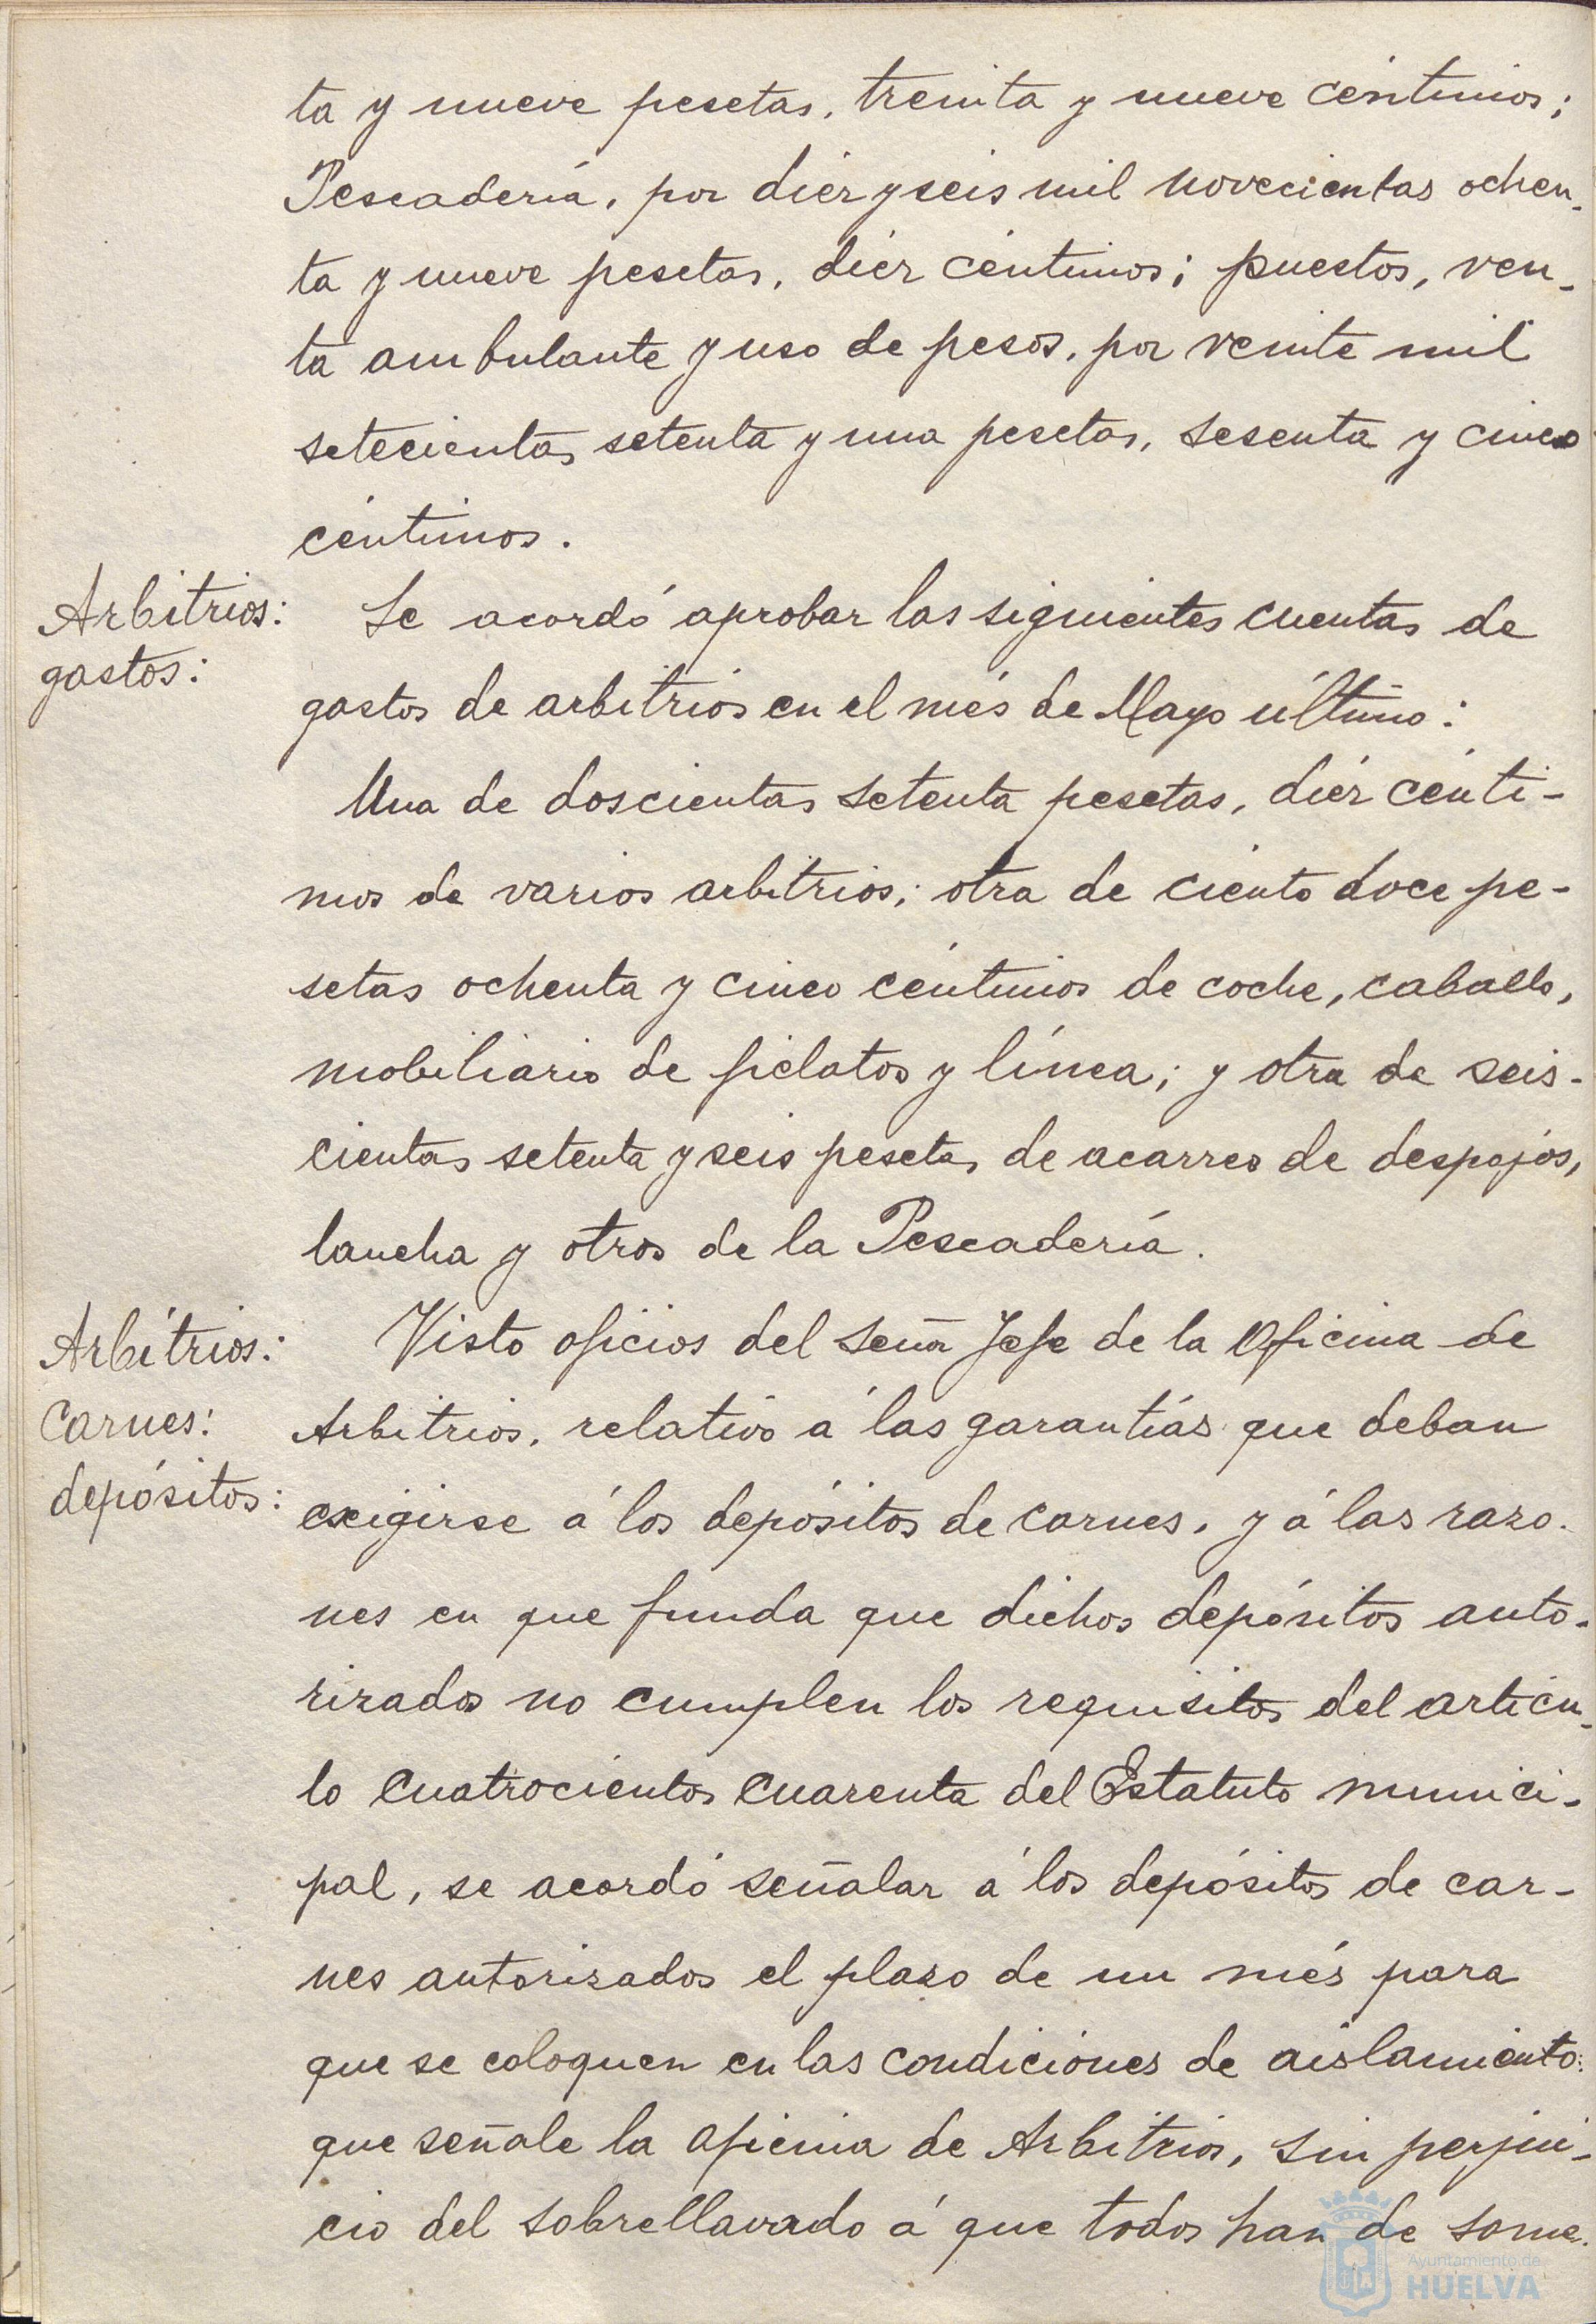 ta y nueve pesetas, treinta y nueve céntimos;
Pescadería, por diez y seis mil novecientas ochen-
ta y nueve pesetas, diéz céntimos; puestos, ven-
ta ambulante y uso de pesos, por veinte mil
setecientas setenta y una pesetas, sesenta y cinco
céntimos.
Arbitrios:
gastos:
Se acordó aprobar las siguientes cuentas de
gastos de arbitrios en el més de Mayo último:
Una de doscientas setenta pesetas, diéz cénti-
mos de varios arbitrios; otra de ciento doce pe-
setas ochenta y cinco céntimos de coche, caballo,
mobiliario de fielatos y línea; y otra de seis-
cientas setenta y seis pesetas de acarreo de despojos,
lancha y otros de la Pescadería.
Arbitrios:
Carnes:
depósitos:
Visto oficios del señor Jefe de la Oficina de
Arbitrios, relativo á las garantías que deban
exigirse á los depósitos de carnes, y á las razo-
nes en que funda que dichos depósitos auto-
rizados no cumplen los requisitos del artícu-
lo cuatrocientos cuarenta del Estatuto munici-
pal, se acordó señalar á los depósitos de car-
nes autorizados el plazo de un més para
que se coloquen en las condiciones de aislamiento
que señale la oficina de Arbitrios, sin perjui-
cio del sobrellavado á que todos han de some-
Ayuntamiento de
HUELVA